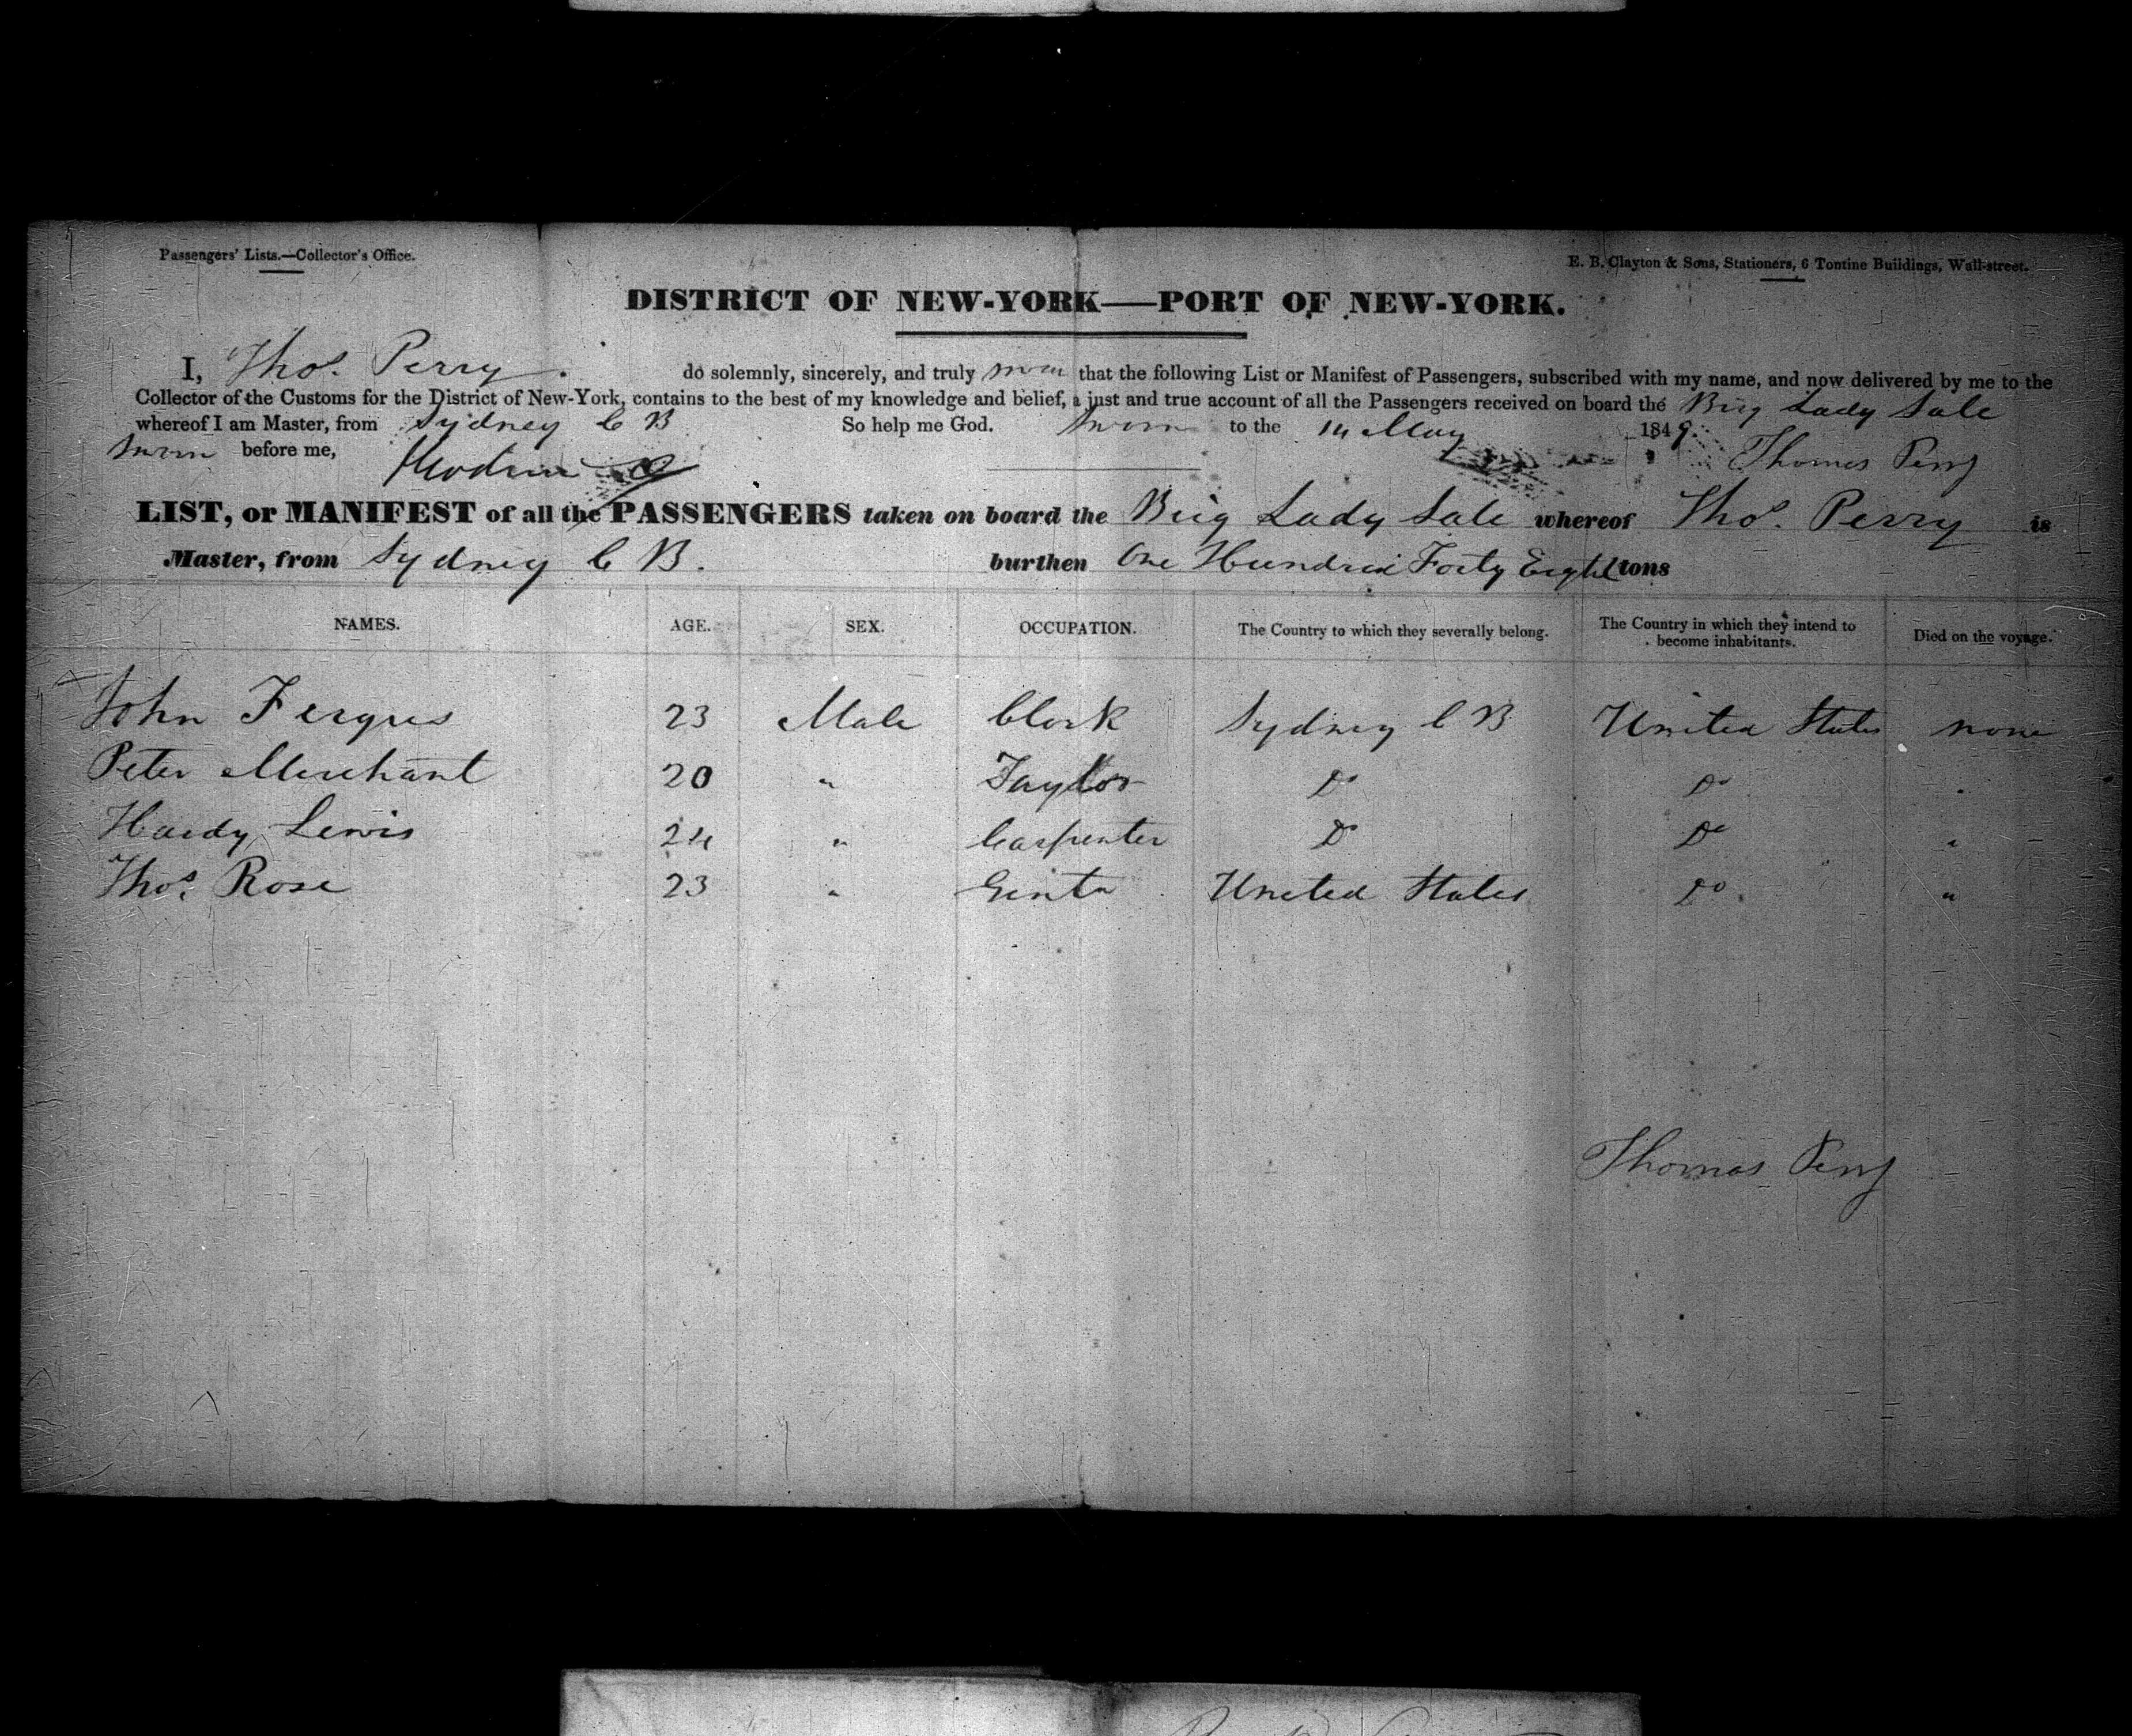 Passengers' Lists.—Collector's Office.
E. B. Clayton & Sons, Stationers, 6 Tontine Buildings, Wall-street.
DISTRICT OF NEW-YORK—PORT OF NEW-YORK.
I, Thos. Perry do solemnly, sincerely, and truly swear that the following List or Manifest of Passengers, subscribed with my name, and now delivered by me to the
Collector of the Customs for the District of New-York, contains to the best of my knowledge and belief, a just and true account of all the Passengers received on board the Brig Lady Sale
whereof I am Master, from Sydney C B So help me God. Sworn to the 14 May 1849.
Sworn before me, Thomas Perry
LIST, or MANIFEST of all the PASSENGERS taken on board the Brig Lady Sale whereof Thos. Perry is
Master, from Sydney C B. burthen One Hundred Forty Eight tons
NAMES. AGE. SEX. OCCUPATION. The Country to which they severally belong. The Country in which they intend to become inhabitants. Died on the voyage.
John Fergus 23 Male Clark Sydney C B United States none
Peter Merchant 20 " Taylor Do Do "
Hardy Lewis 24 " Carpenter Do Do "
Thos. Rose 23 " United States Do "
Thomas Perry